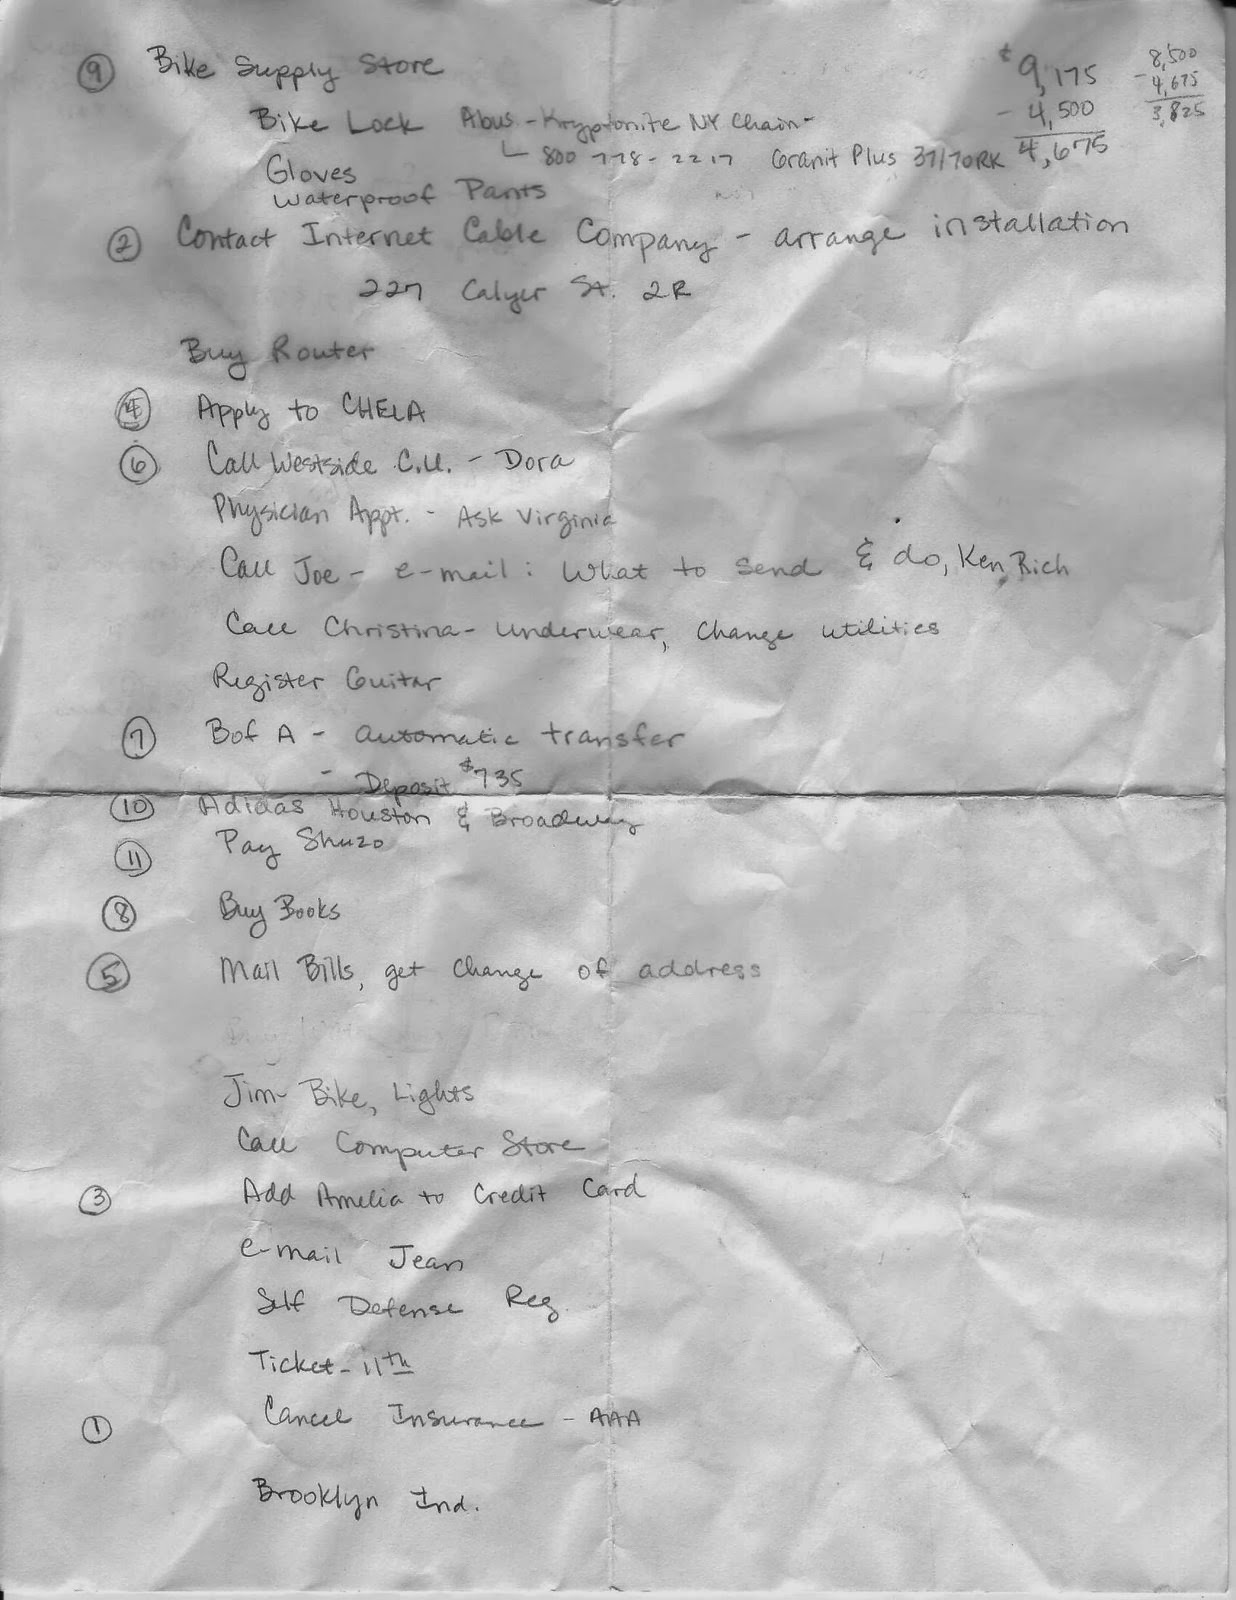 ⑨ Bike Supply Store
$9,175
8,500
- 4,675
3,825
Bike Lock Abus - Kryptonite NY Chain -
- 4,500
4,675
800 778-2217 Granit Plus 37/70RK
Gloves
Waterproof Pants
② Contact Internet Cable Company - arrange installation
227 Calyer St. 2R
Buy Router
④ Apply to CHELA
⑥ Call Westside C.U. - Dora
Physician Appt. - Ask Virginia
Call Joe - e-mail: What to send & do, Ken, Rich
Call Christina - underwear, change utilities
Register Guitar
⑦ B of A - automatic transfer
- Deposit $735
⑩ Adidas Houston & Broadway
⑪ Pay Shuzo
⑧ Buy Books
⑤ Mail Bills, get change of address
Jim - Bike, Lights
Call Computer Store
③ Add Amelia to Credit Card
e-mail Jean
Self Defense Reg.
Ticket - 11th
① Cancel Insurance - AAA
Brooklyn Ind.